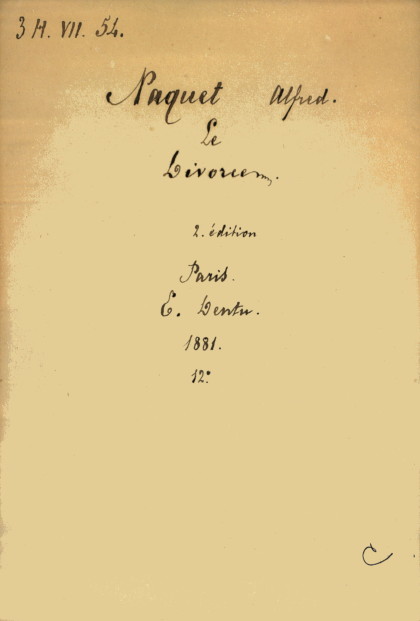 3 H. VII. 54.
Naquet Alfred.
Le
Divorce
2. édition
Paris.
E. Dentu.
1881.
12°
C